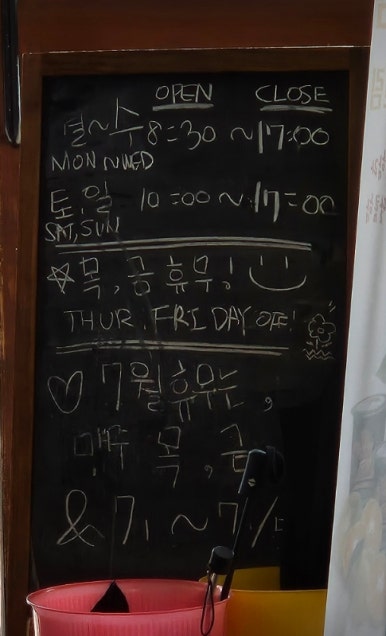 OPEN CLOSE
월~수 8:30 ~17:00
MON~WED
토, 일 10:00~17:00
SAT, SUN
☆목, 금 휴무!
THUR. FRIDAY OFF!
♡ 7월휴무는,
매주 목, 금
& 7, ~ 7/